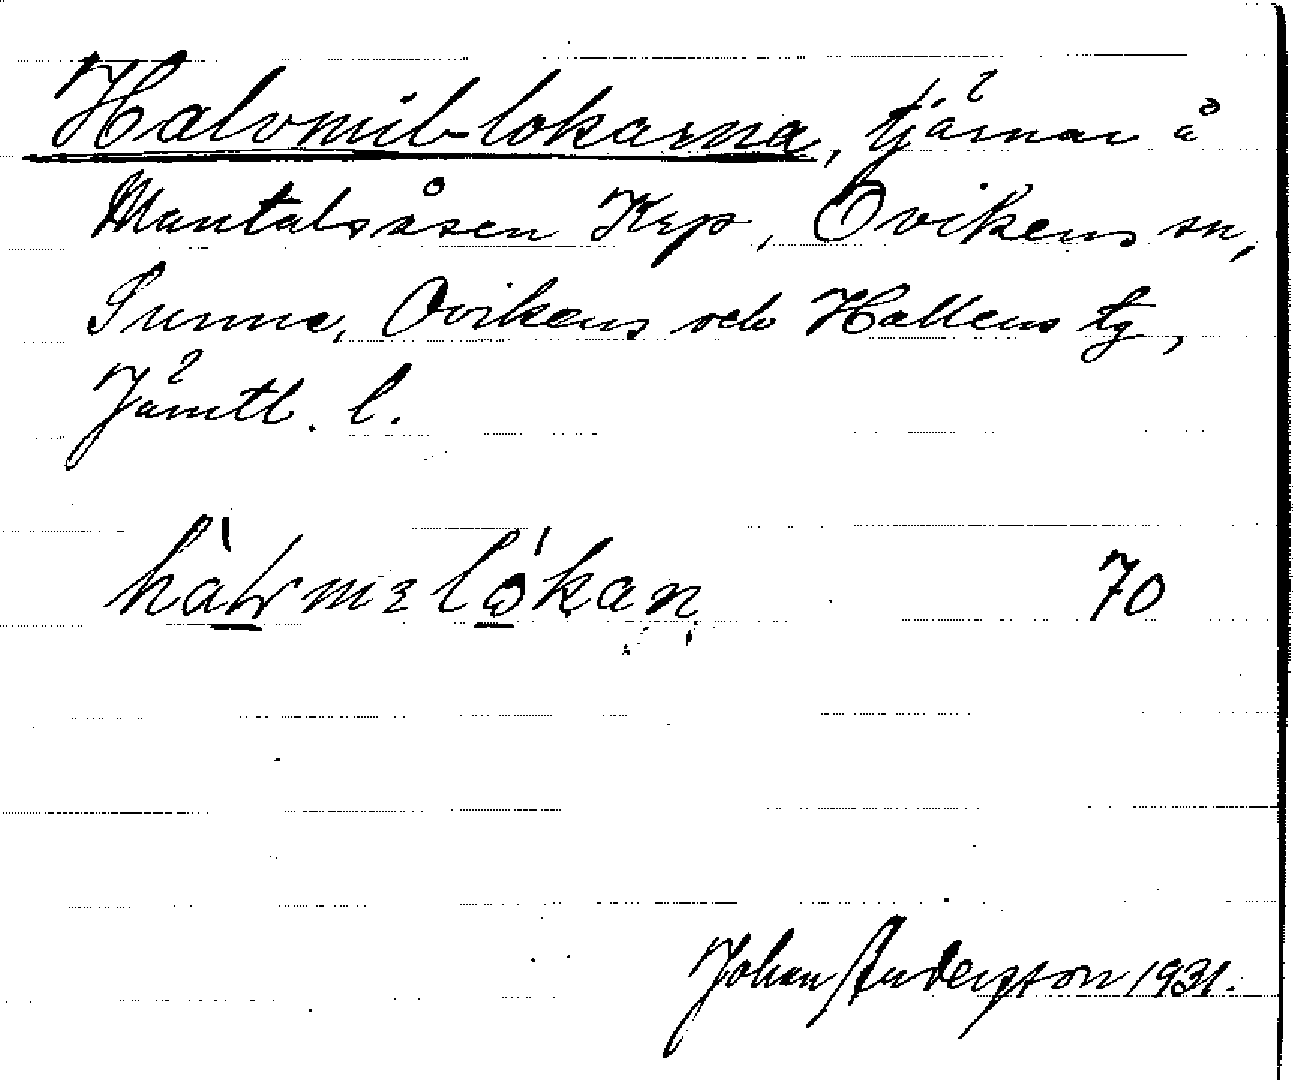 Halvmil-lokarna, tjärnar å
Mantalsåsen Krp, Ovikens sn,
Sunne, Ovikens och Hallens tg,
Jämtl. l.
70
Johan Andersson 1931.